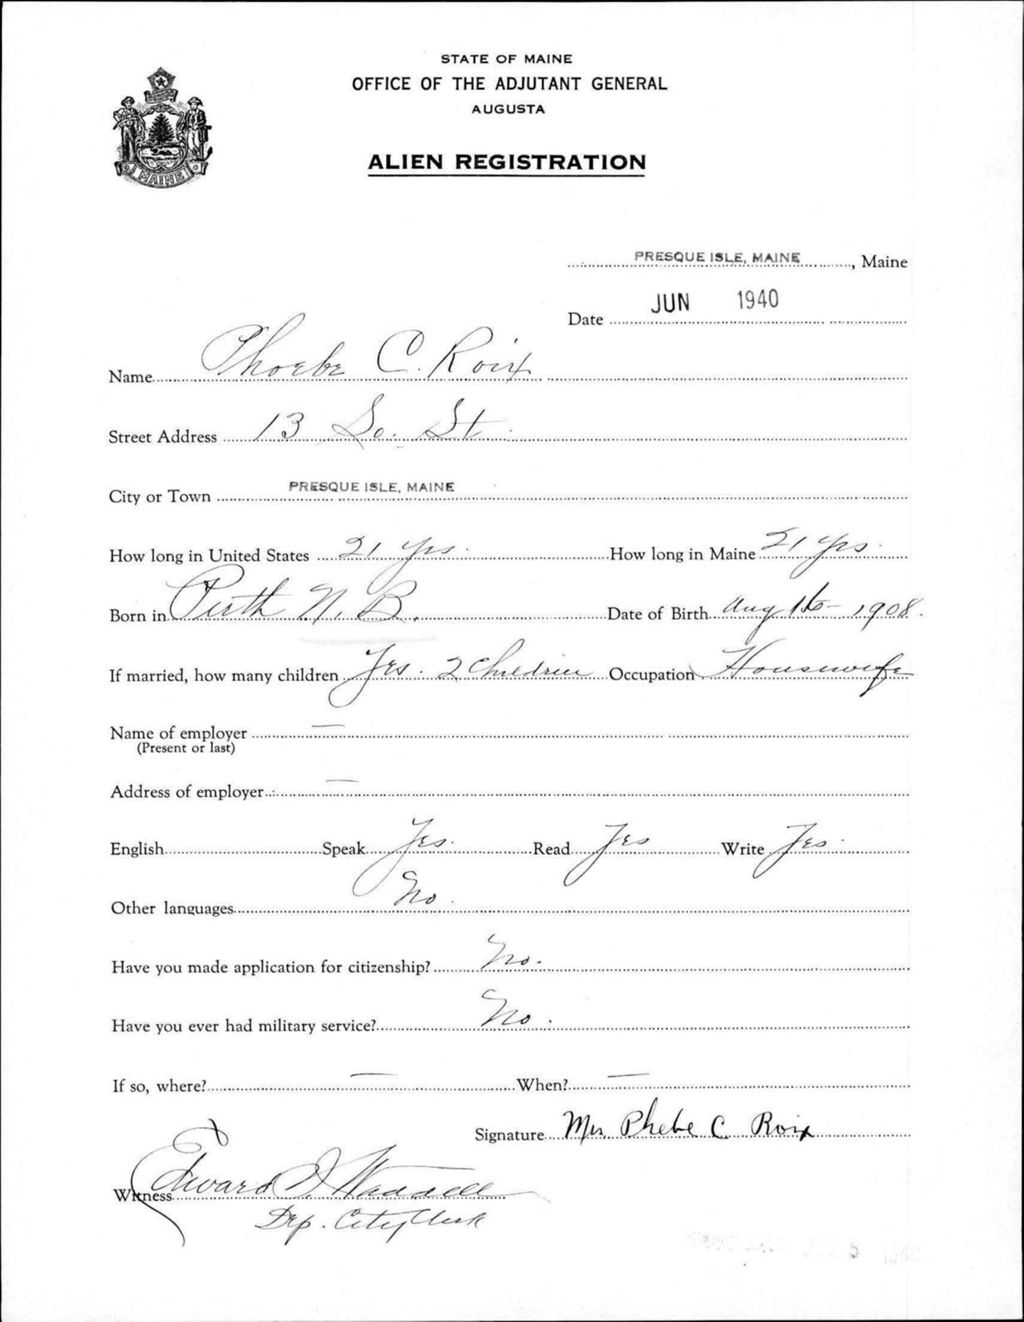 STATE OF MAINE
OFFICE OF THE ADJUTANT GENERAL
AUGUSTA
ALIEN REGISTRATION
MAINE
PRESQUE ISLE, MAINE, Maine
Date JUN 1940
Name Phoebe C. Roix
Street Address 13 So. St.
City or Town PRESQUE ISLE, MAINE
How long in United States 21 yrs. How long in Maine 21 yrs.
Born in Perth N.B. Date of Birth Aug 16 - 1908.
If married, how many children Yes. 2 Children Occupation Housewife
Name of employer —
(Present or last)
Address of employer —
English Speak Yes. Read Yes Write Yes.
Other languages No.
Have you made application for citizenship? No.
Have you ever had military service? No.
If so, where? — When? —
Signature Mrs. Phebe C Roix
Witness Edward
Dep. City Clerk